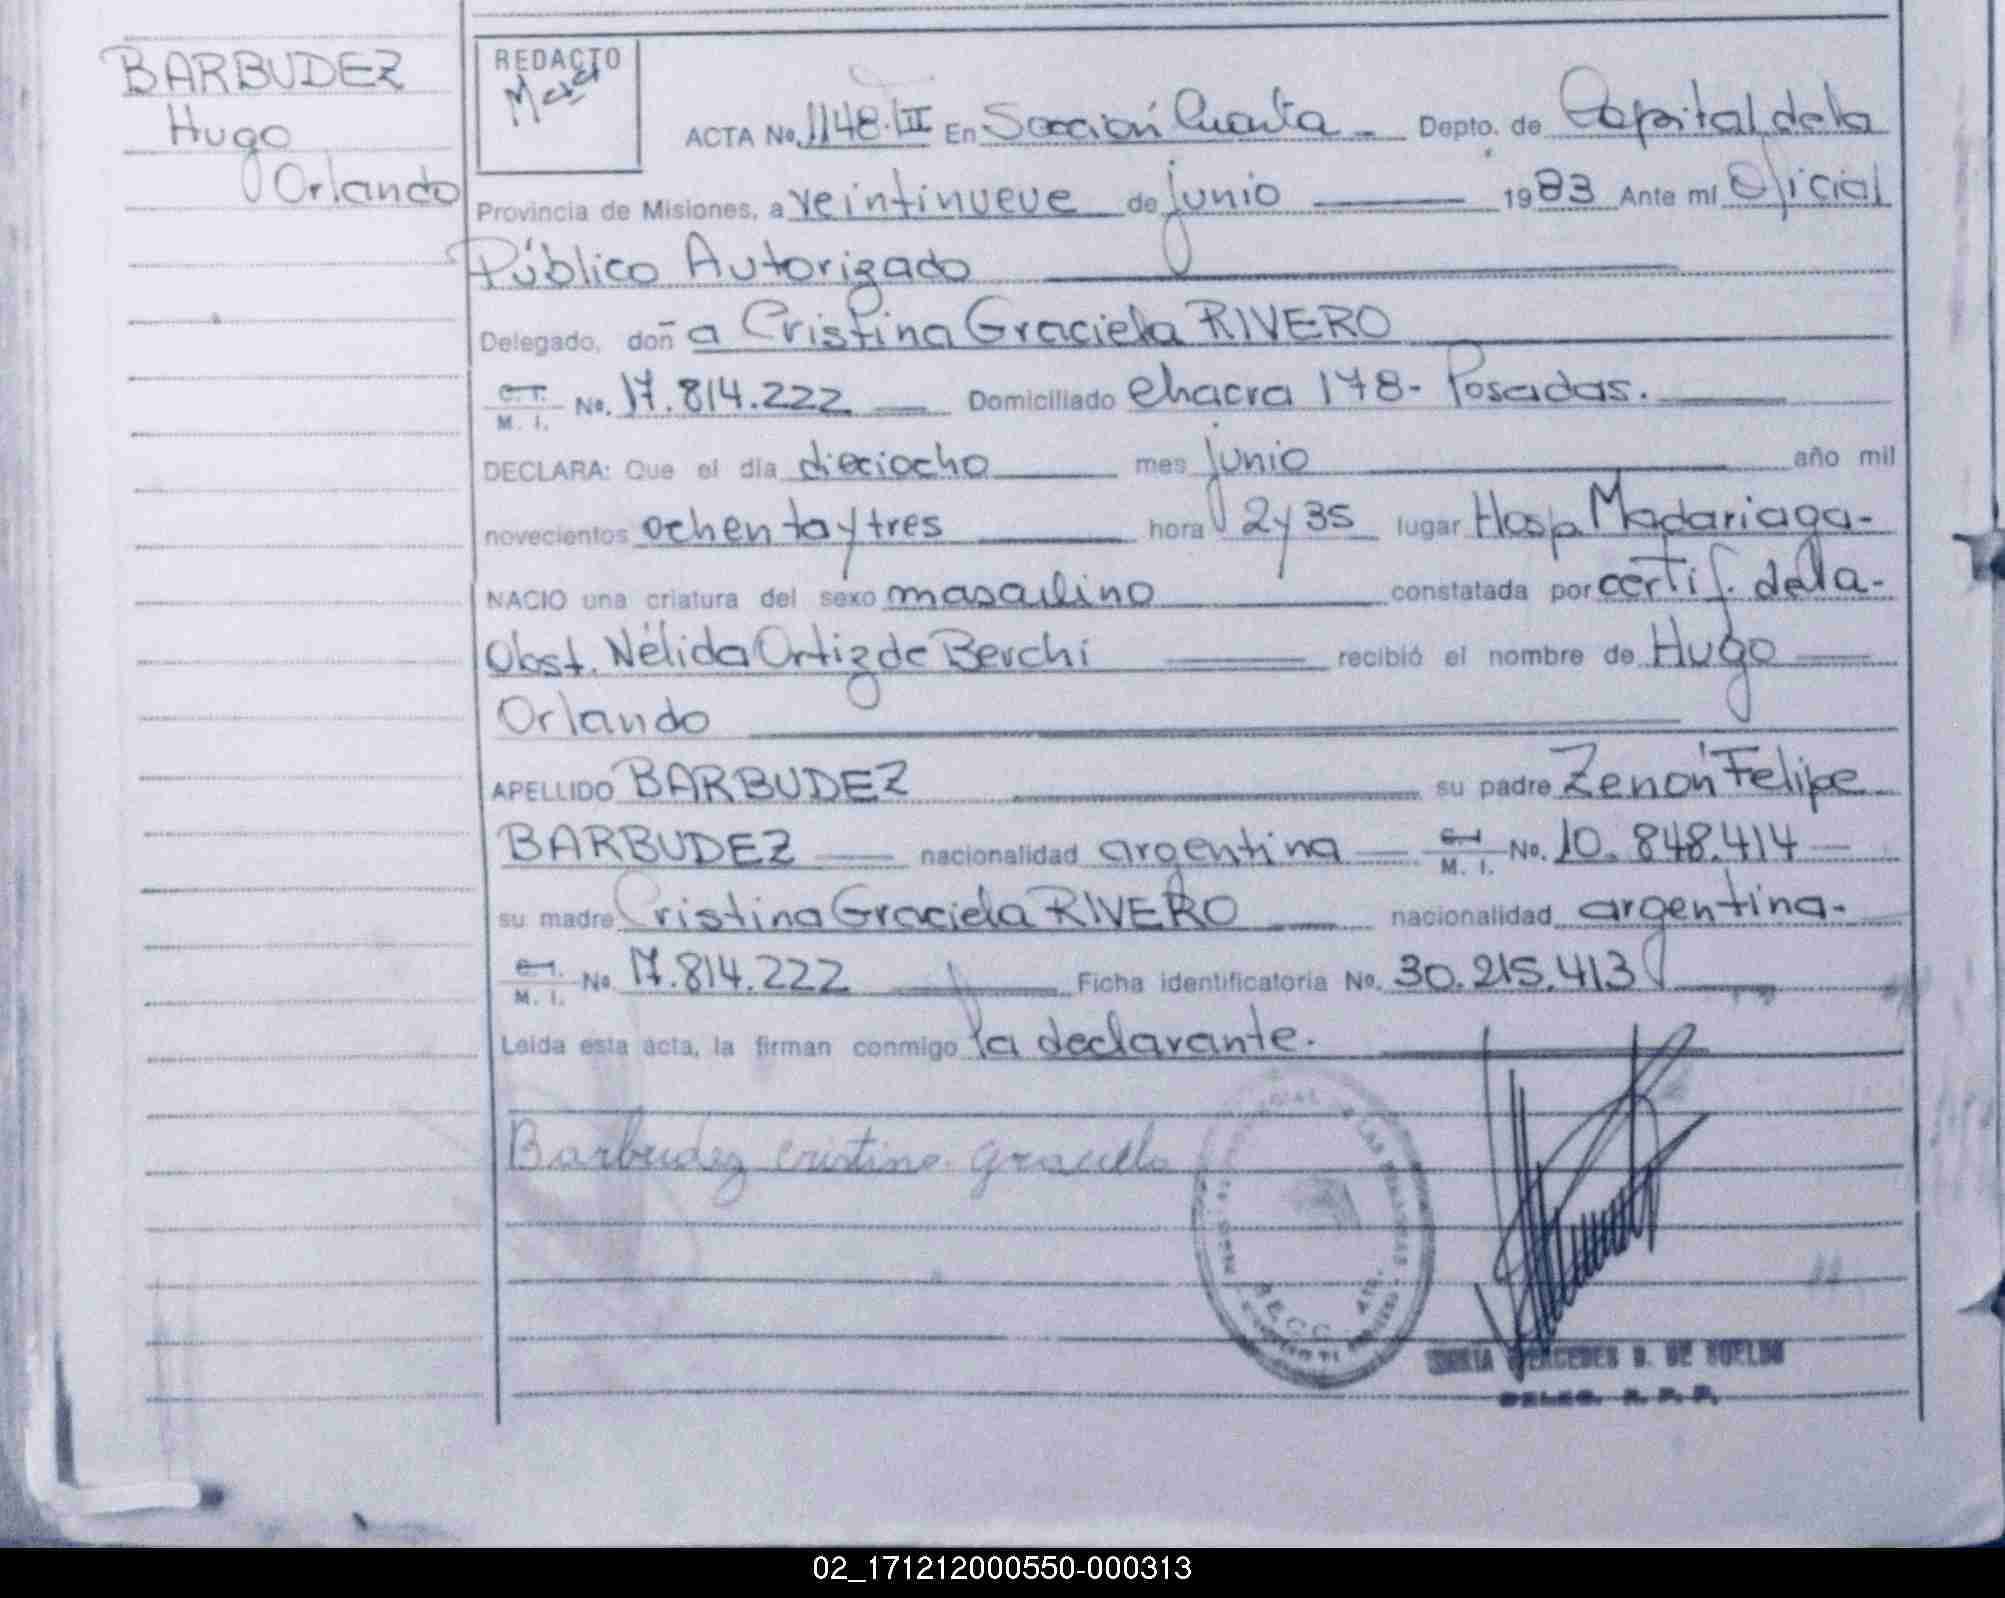 BARBUDEZ
Hugo
Orlando
REDACTO
ACTA No. 1148. III En Sección Cuarta Depto. de Capital de la
Provincia de Misiones, a veintinueve de junio 1983 Ante mí Oficial
Público Autorizado
Delegado, doña Cristina Graciela RIVERO
C.I. M. I. No. 17.814.222 Domiciliado chacra 178 - Posadas.
DECLARA: Que el día dieciocho mes junio año mil
novecientos ochenta y tres hora 2 y 35 lugar Hosp. Madariaga-
NACIO una criatura del sexo masculino constatada por certif. de la-
Obst. Nélida Ortiz de Berchi recibió el nombre de Hugo
Orlando
APELLIDO BARBUDEZ su padre Zenón Felipe
BARBUDEZ nacionalidad argentina C.I. M. I. No. 10.848.414
su madre Cristina Graciela RIVERO nacionalidad argentina-
C.I. M. I. No 17.814.222 Ficha identificatoria No. 30.215.413
Leída esta acta, la firman conmigo la declarante.
Barbudez Cristina Graciela
MERCEDES D. DE SUELDO
DELEG. R. P. P.
02_171212000550-000313